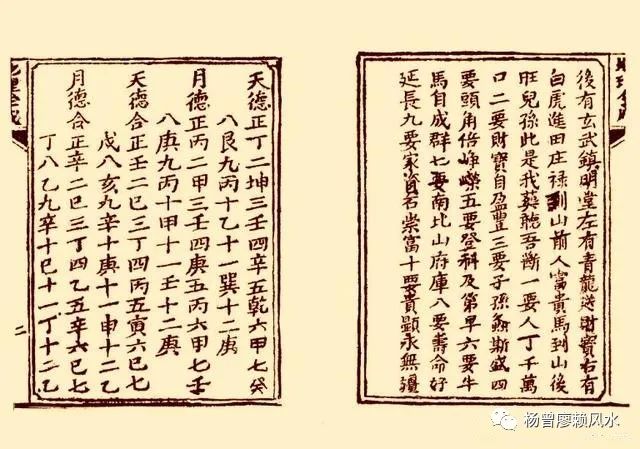 後有玄武鎮明堂左有青龍送財寶右有
白虎進田庄禄到山前人富貴馬到山後
旺兒孫此是我葬聽吾斷一要人丁千萬
口二要財寶自盈豐三要子孫螽斯盛四
要頭角倍崢嶸五要登科及第早六要牛
馬自成群七要南比山府庫八要壽命好
延長九要家資石崇富十要貴顯永無疆
天德正丁二坤三壬四辛五乾六甲七癸
八艮九丙十乙十一巽十二庚
月德正丙二甲三壬四庚五丙六甲七壬
八庚九丙十甲十一壬十二庚
天德合正壬二巳三丁四丙五寅六巳七
戊八亥九辛十庚十一申十二乙
月德合正辛二巳三丁四乙五辛六巳七
丁八乙九辛十巳十一丁十二乙
二
杨曾廖赖风水